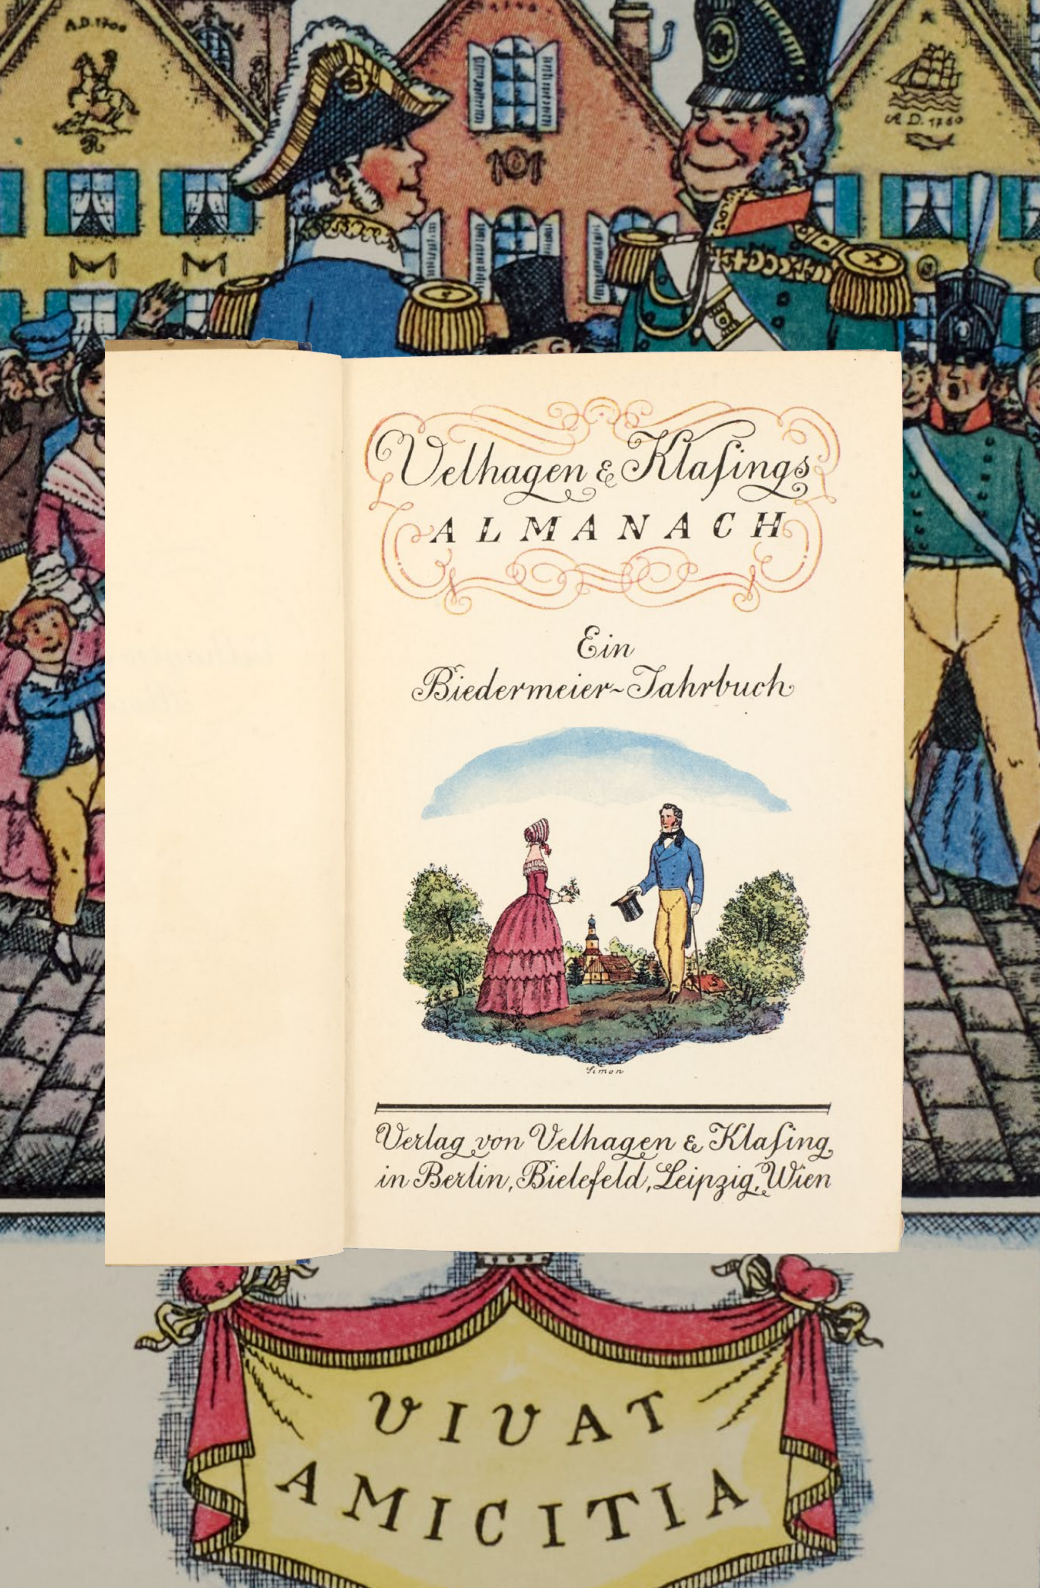 A.D. 1700
A.D. 1760
Velhagen & Klaſings
ALMANACH
Ein
Biedermeier-Jahrbuch
Simon
Verlag von Velhagen & Klaſing
in Berlin, Bielefeld, Leipzig, Wien
VIVAT
AMICITIA